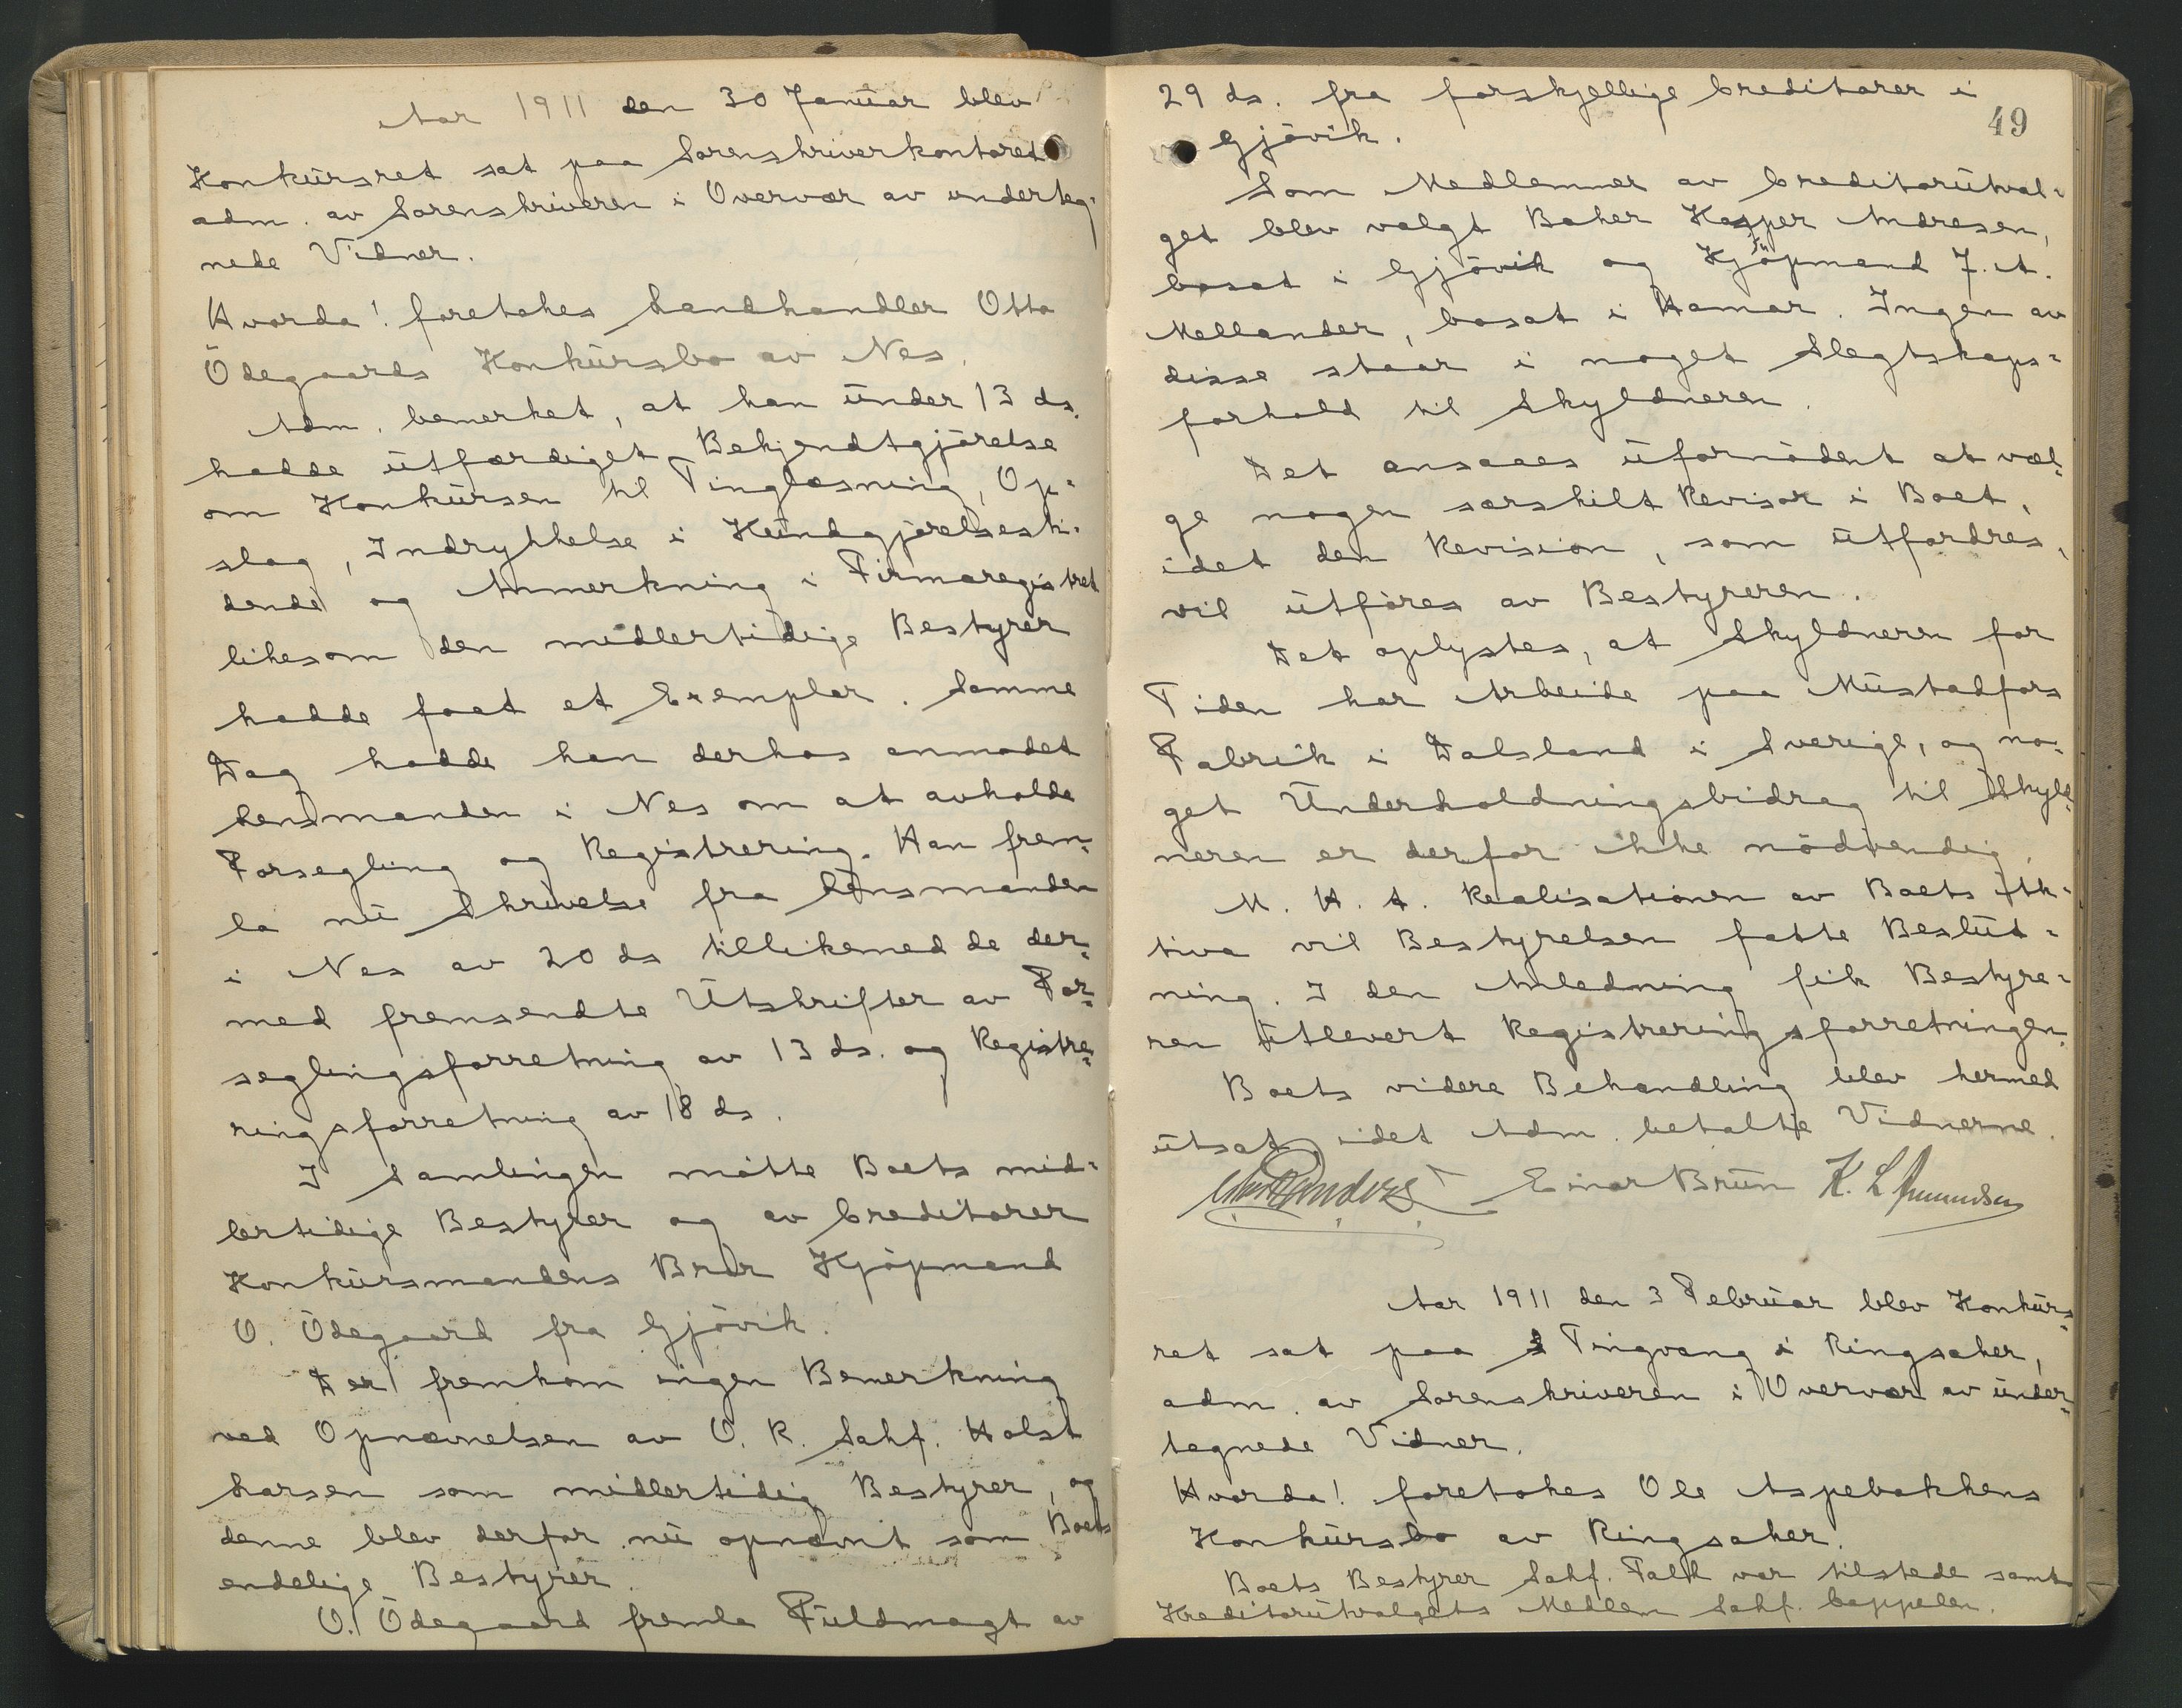 Aar 1911 den 30 Januar blev
Konkursret sat paa Sorenskriverkontoret
adm. av Sorenskriveren i Overvær av underteg-
nede Vidner.
Hvorda! foretokes Landhandler Otto
Ödegaards Konkursbo av Nes.
Adm. bemerket, at han under 13 ds.
hadde utfærdiget Bekjendtgjörelse
om Konkursen til Tinglæsning, Op-
slag, Indrykkelse i Kundgjörelsesti-
dende og Anmerkning i Firmaregistret
likesom den midlertidige Bestyrer
hadde faat et Exemplar. Samme
Dag hadde han derhos anmodet
Lensmanden i Nes om at avholde
Forsegling og Registrering. Han frem-
la nu Skrivelse fra Lensmanden
i Nes av 20 ds tillikemed de der-
med fremsendte Utskrifter av For-
seglingsforretning av 13 ds. og Registre-
ringsforretning av 18 ds.
I Samlingen mötte Boets mid-
lertidige Bestyrer og av Creditorer
Konkursmandens Bror Kjöpmand
O. Ödegaard fra Gjövik.
Der fremkom ingen Bemerkning
ved Opnævnelsen av O. R. Sakf. Holst
Larsen som midlertidig Bestyrer, og
denne blev derfor nu opnævnt som Boets
endelige Bestyrer.
O. Ödegaard fremla Fuldmagt av
49
29 ds. fra forskjellige Creditorer i
Gjövik.
Som Medlemmer av Creditorutval-
get blev valgt Baker Kasper Andresen,
bosat i Gjövik og Kjöpmand J. A.
Mellander, bosat i Hamar. Ingen av
disse staar i noget Slegtskaps-
forhold til Skyldneren.
Det ansaaes ufornödent at væl-
ge nogen særskilt Revisor i Boet,
idet den Revision, som utfordres,
vil utföres av Bestyreren.
Det oplystes, at Skyldneren for
Tiden har Arbeide paa Mustadfors
Fabrik i Dalsland i Sverige, og no-
get Underholdningsbidrag til Skyld-
neren er derfor ikke nödvendig.
M. H. t. Realisationen av Boets Ak-
tiva vil Bestyrelsen fatte Beslut-
ning. I den Anledning fik Bestyre-
ren utlevert Registreringsforretningen.
Boets videre Behandling blev hermed
utsat, idet Adm. betalte Vidnerne.
Einar Bruun K. L. Amundsen
Aar 1911 den 3 Februar blev Konkurs-
ret sat paa Tingvang i Ringsaker,
adm. av Sorenskriveren i Overvær av under-
tegnede Vidner.
Hvorda! foretokes Ole Aspebakkens
Konkursbo av Ringsaker.
Boets Bestyrer Sakf. Falk var tilstede samt
Kreditorutvalgets Medlem Sakf. Cappelen.